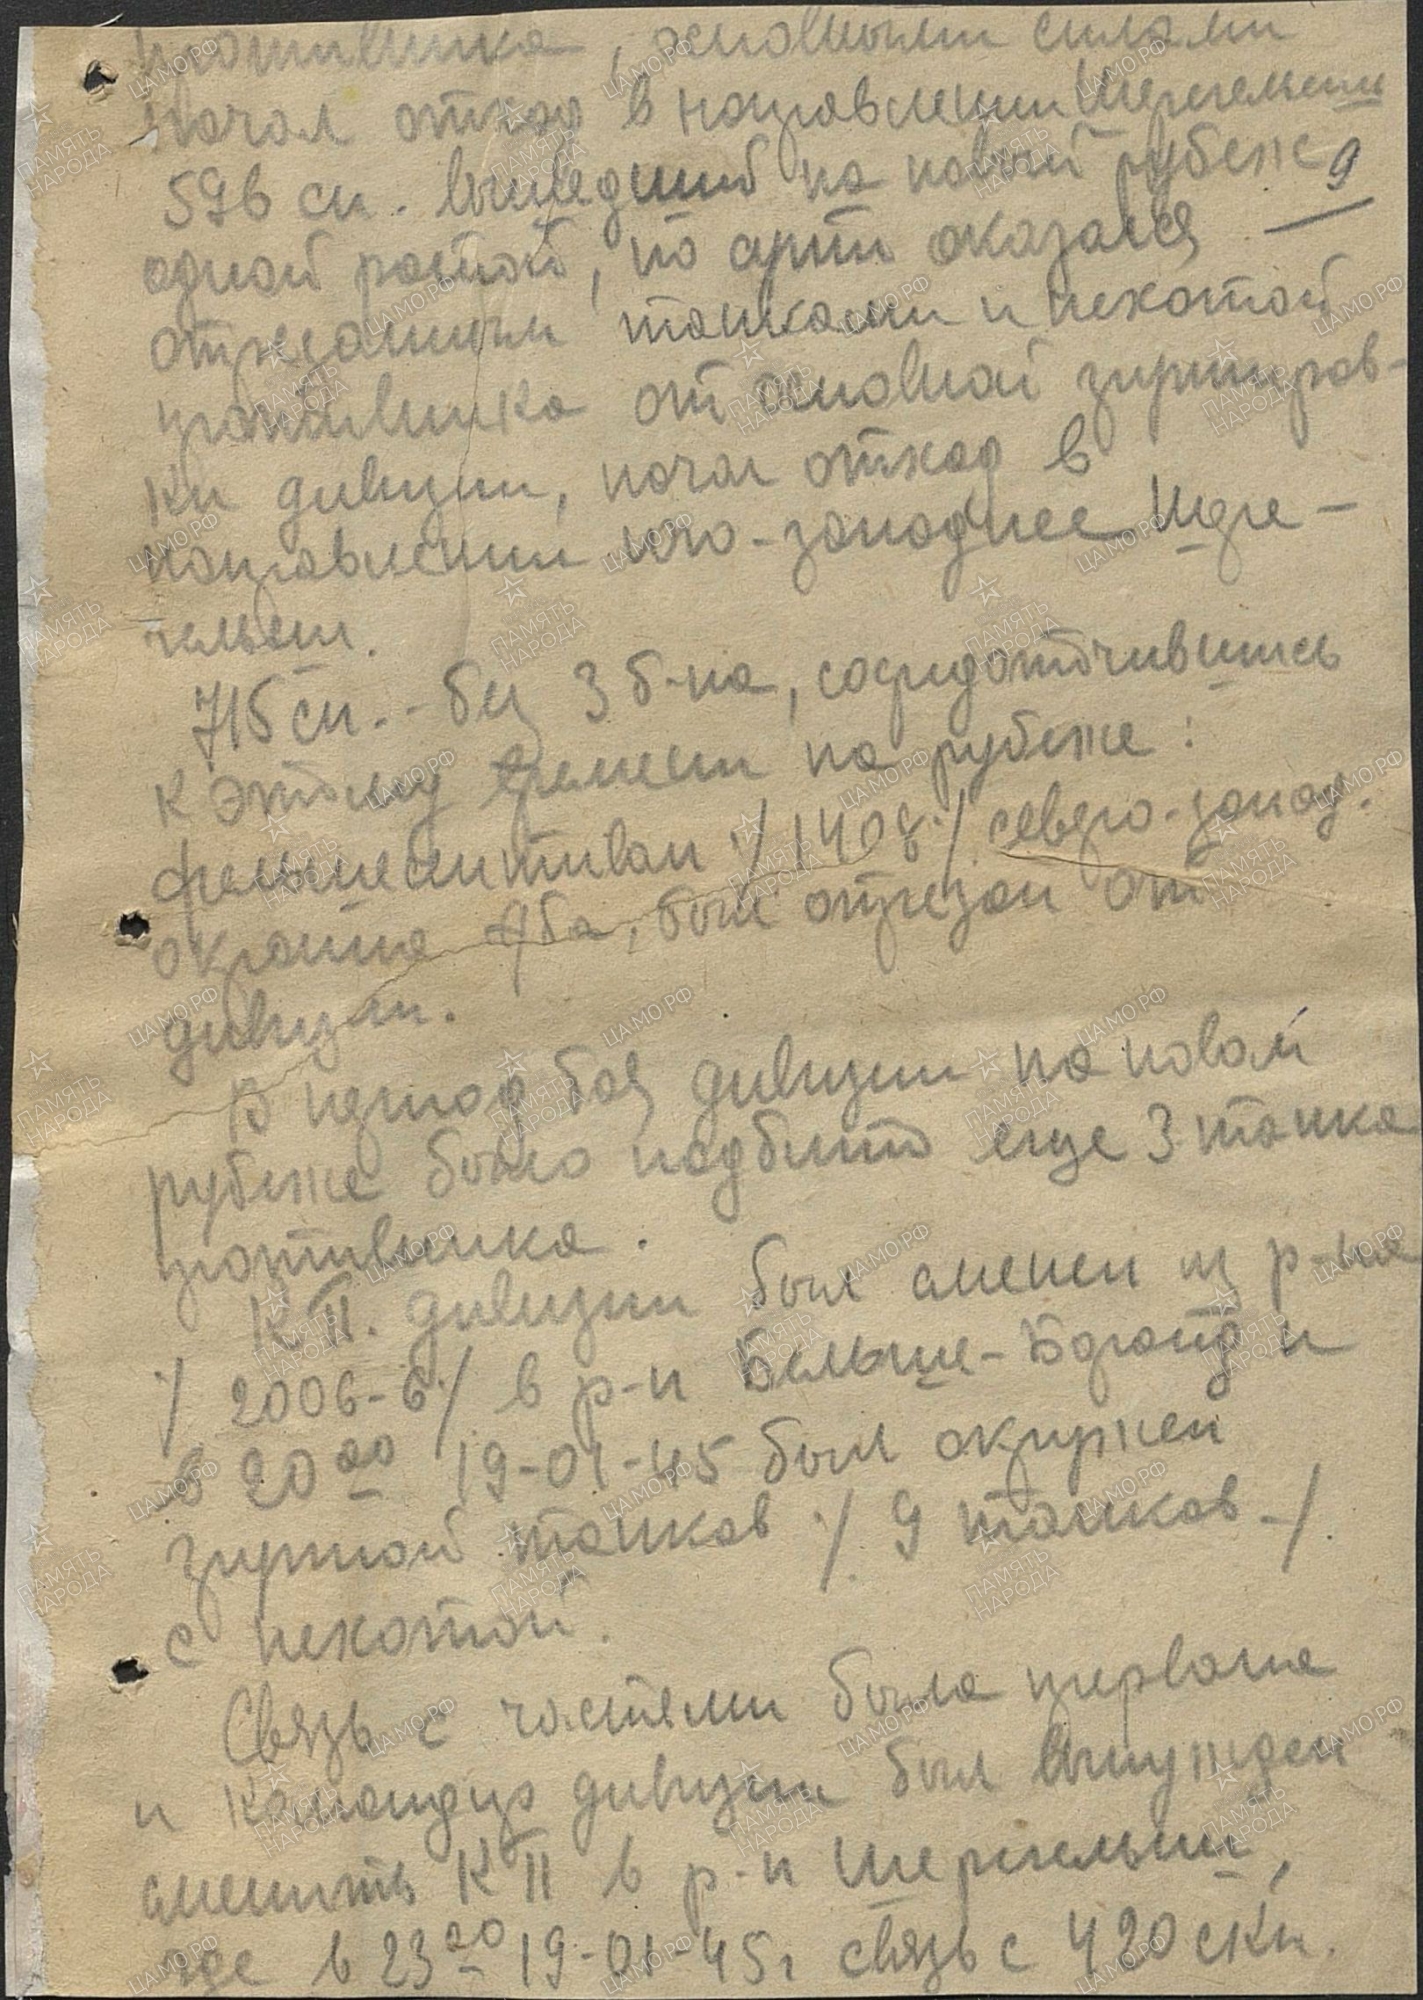 противника, основными силами
начал отход в направлении Шерегельеш
9
596 сп. вышедший на новый рубеж
одной ротой, по арти оказался
отжатым танками и пехотой
противника от основной группиров-
ки дивизии, начал отход в
направлении юго-западнее Шере-
гельеш.
715 сп. - без 3 б-на, сосредоточившись
к этому времени на рубеже:
/1408/ северо-запад.
окраина Аба, был отрезан от
дивизии.
В период боя дивизии на новом
рубеже было подбито еще 3 танка
противника.
КП. дивизии был сменен из р-на
/ 2006-б / в р-н Бельше- и
в 20 20 19-01-45 был окружен
группой танков / 9 танков - /
с пехотой.
Связь с частями была прервана
и командир дивизии был вынужден
сменить КП в р-н Шерегельеш,
где в 23 20 19-01-45 г связь с 420 скп.